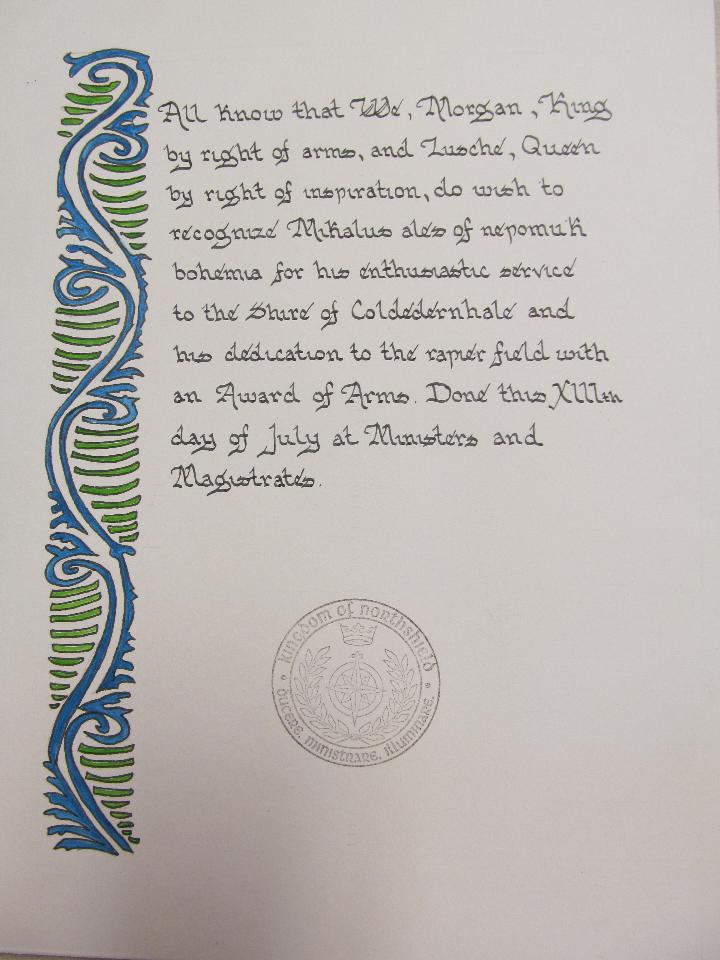 All know that We, Morgan, King
by right of arms, and Lusche, Queen
by right of inspiration, do wish to
recognize Mikalus ales of nepomuk
bohemia for his enthusiastic service
to the Shire of Coldedernhale and
his dedication to the rapier field with
an Award of Arms. Done this XIIIth
day of July at Ministers and
Magistrates.
kingdom of northshield
ducere, ministrare, illuminare.